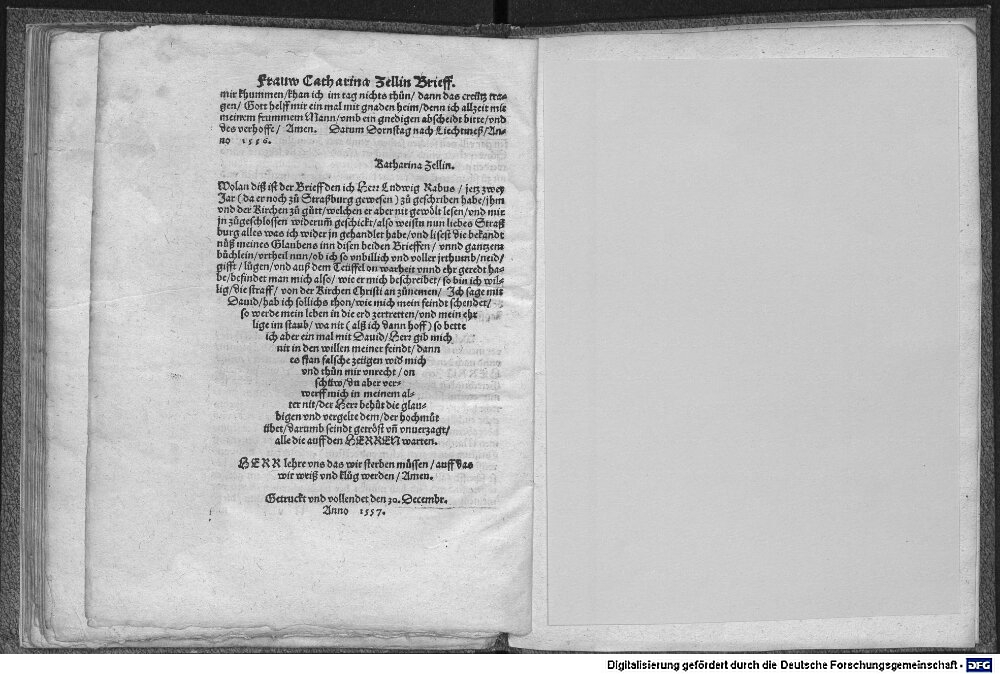 Frauw Catharina Zellin Brieff.
mir khummen/ khan ich im tag nichts thůn/ dann das creütz tra-
gen/ Gott helff mir ein mal mit gnaden heim/ denn ich allzeit mit
meinem frummem Mann/ vmb ein gnedigen abscheidt bitte/ vnd
des verhoffe/ Amen. Datum Dornstag nach Liechtmeß/ An-
no 1556.
Katharina Zellin.
Wolan diß ist der Brieff den ich Herr Ludwig Rabus/ jetz zwey
Jar (da er noch zů Straßburg gewesen) zů geschriben habe/ jhm
vnd der Kirchen zů gůtt/ welchen er aber nit gewölt lesen/ vnd mir
jn zůgeschlossen widerum̃ geschickt/ also weistu nun liebes Straß
burg alles was ich wider jn gehandlet habe/ vnd lisest die bekandt
nüß meines Glaubens inn disen beiden Brieffen/ vnnd gantzem
büchlein/ vrtheil nun/ ob ich so vnbillich vnd voller jrthumb/ neid/
gifft/ lügen/ vnd auß dem Teüffel on warheit vnnd ehr geredt ha-
be/ befindet man mich also/ wie er mich beschreibet/ so bin ich wil-
lig/ die straff/ von der Kirchen Christi an zůnemen/ Ich sage mit
Dauid/ hab ich sollichs thon/ wie mich mein feindt schendet/
so werde mein leben in die erd zertretten/ vnd mein ehr
lige im staub/ wa nit (alß ich dann hoff) so bette
ich aber ein mal mit Dauid/ Herr gib mich
nit in den willen meiner feindt/ dann
es stan falsche zeügen wid mich
vnd thůn mir vnrecht/ on
schüw/ du aber ver-
werff mich in meinem al-
ter nit/ der Herr behüt die glau-
bigen vnd vergelte dem/ der hochmůt
übet/ darumb seindt getröst vn̄ vnuerzagt/
alle die auff den HERREN warten.
HERR lehre vns das wir sterben müssen/ auff das
wir weiß vnd klůg werden/ Amen.
Getruckt vnd vollendet den 30. Decembr.
Anno 1557.
Digitalisierung gefördert durch die Deutsche Forschungsgemeinschaft - DFG